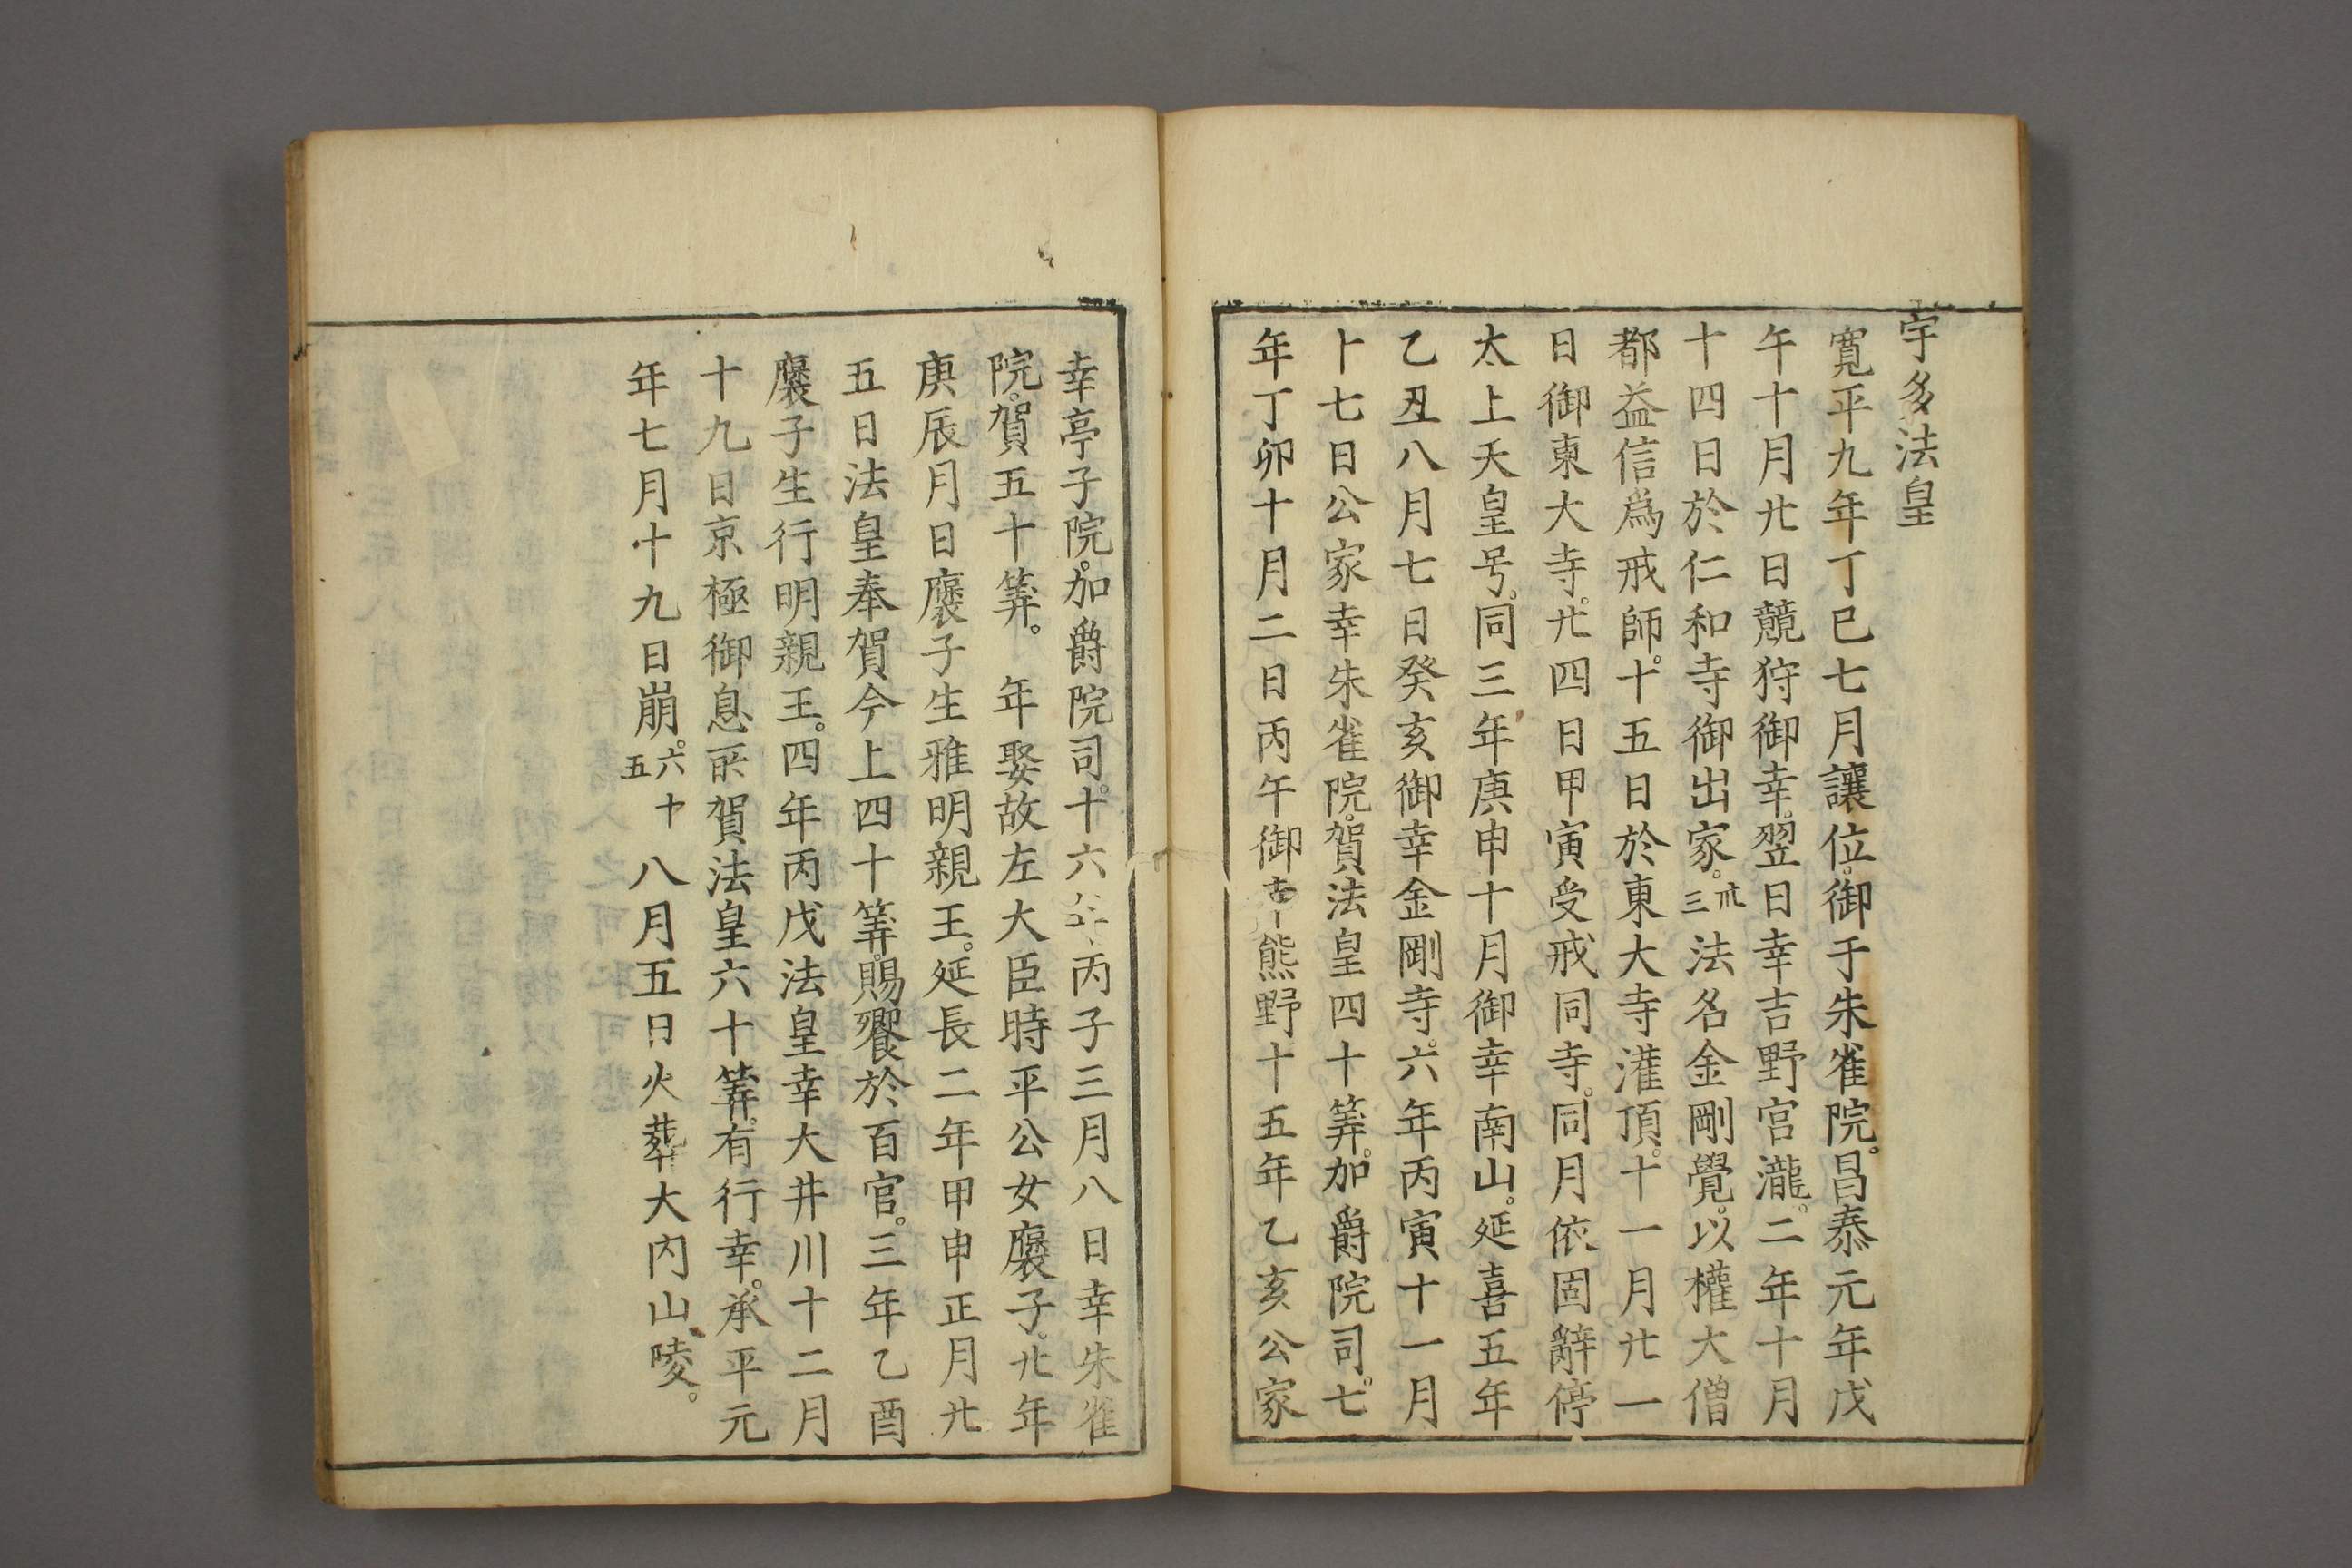 宇多法皇
寛平九年丁巳七月讓位。御于朱雀院。昌泰元年戊
午十月廿日競狩御幸。翌日幸吉野宮瀧。二年十月
十四日於仁和寺御出家。卅三法名金剛覺。以權大僧
都益信爲戒師。十五日於東大寺灌頂。十一月廿一
日御東大寺。廿四日甲寅受戒同寺。同月依固辭停
太上天皇号。同三年庚申十月御幸南山。延喜五年
乙丑八月七日癸亥御幸金剛寺。六年丙寅十一月
十七日公家幸朱雀院。賀法皇四十筭。加爵院司。七
年丁卯十月二日丙午御幸熊野十五年乙亥公家
幸亭子院。加爵院司。十六年丙子三月八日幸朱雀
院。賀五十筭。年娶故左大臣時平公女褒子。廿年
庚辰月日褒子生雅明親王。延長二年甲申正月廿
五日法皇奉賀今上四十筭。賜饗於百官。三年乙酉
褒子生行明親王。四年丙戌法皇幸大井川十二月
十九日京極御息所賀法皇六十筭。有行幸。承平元
年七月十九日崩。六十五八月五日火葬大内山陵。